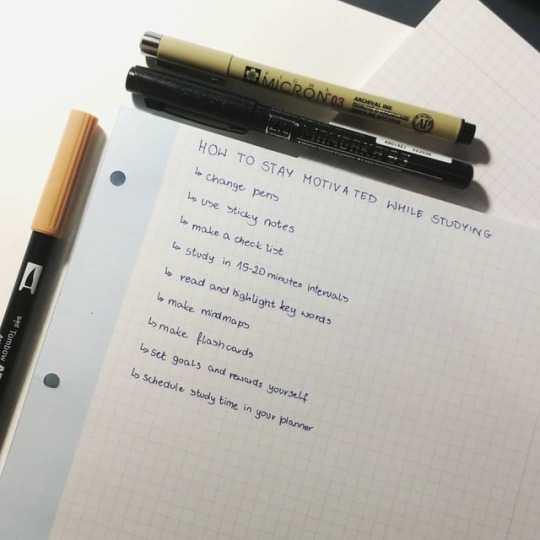 SAKURA
MICRON 03
ARCHIVAL INK
AP
HOW TO STAY MOTIVATED WHILE STUDYING
↳ change pens
↳ use sticky notes
↳ make a check list
↳ study in 15-20 minutes intervals
↳ read and highlight key words
↳ make mindmaps
↳ make flashcards
↳ set goals and rewards yourself
↳ schedule study time in your planner
Tombow